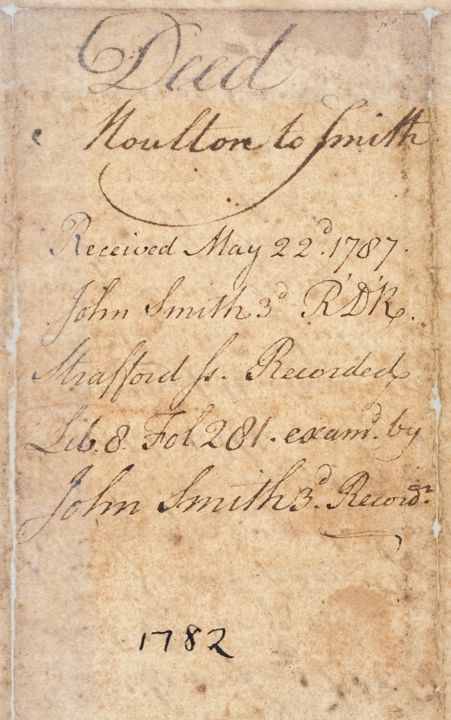 Deed
Moulton to Smith
Received May 22ᵈ. 1787.
John Smith 3ᵈ R'D'R.
Strafford ss. Recorded
Lib. 8. Fol 281. examᵈ. by
John Smith 3ᵈ. Recordʳ.
1782